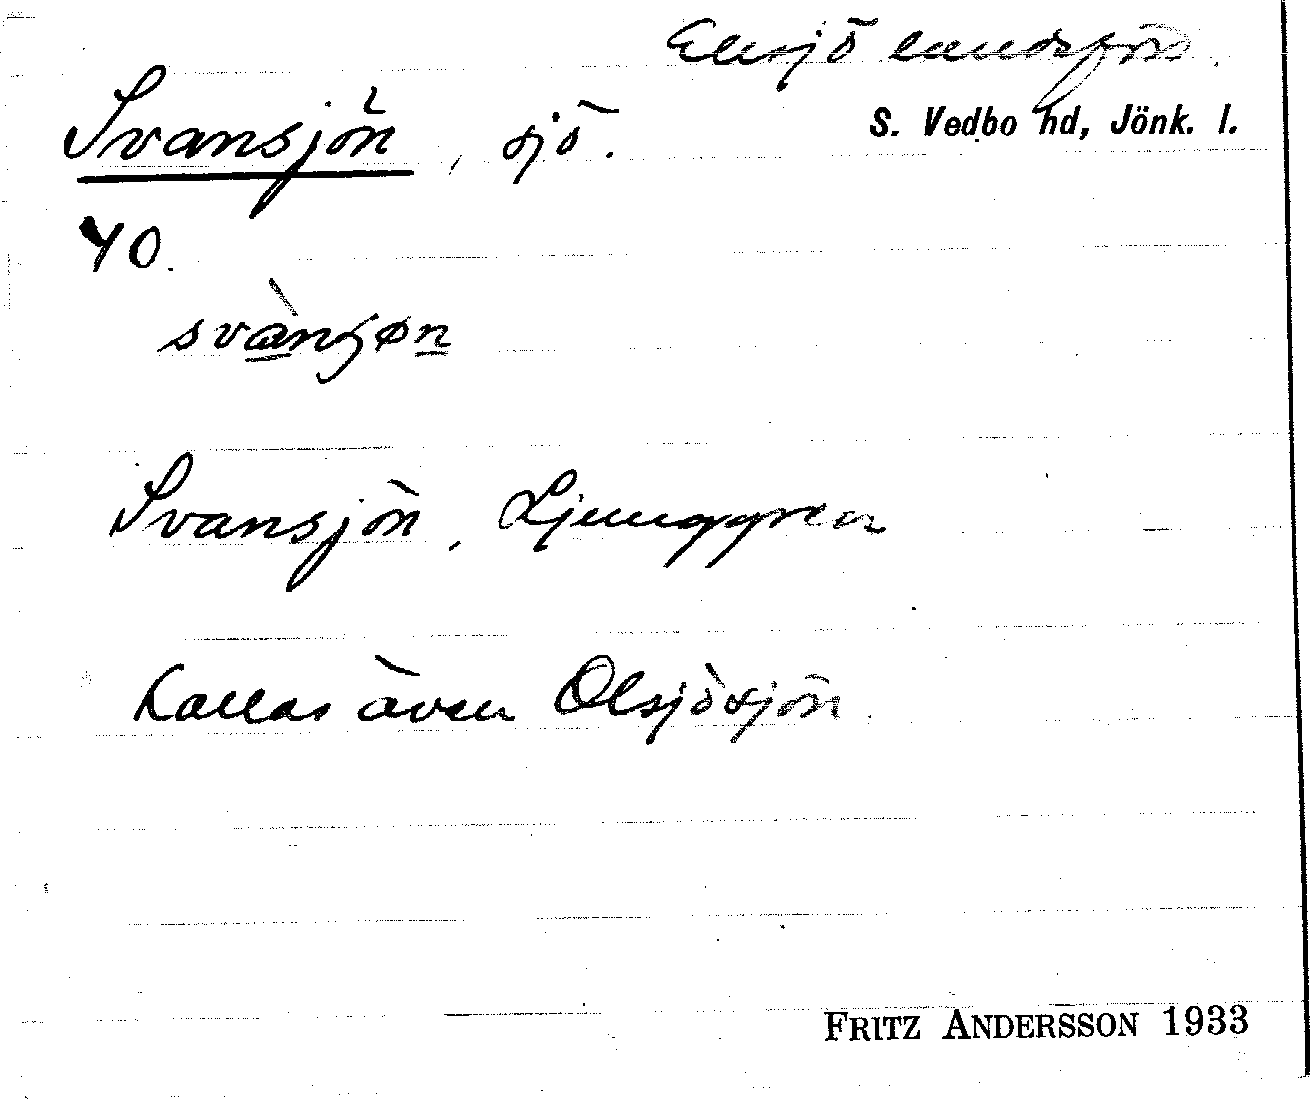 Eksjö landsförs.
S. Vedbo hd, Jönk. l.
Svansjön, sjö.
40.
Svansjön, Ljunggren
Kallas även Olsjösjön
FRITZ ANDERSSON 1933